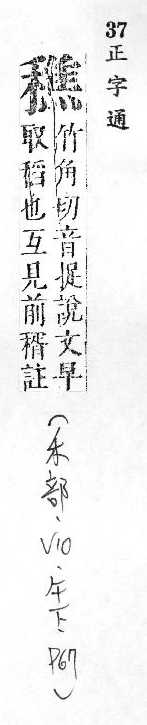 37正字通
穛
竹角切音捉說文早
取稻也互見前稰註
(禾部、V10、午下、P67)